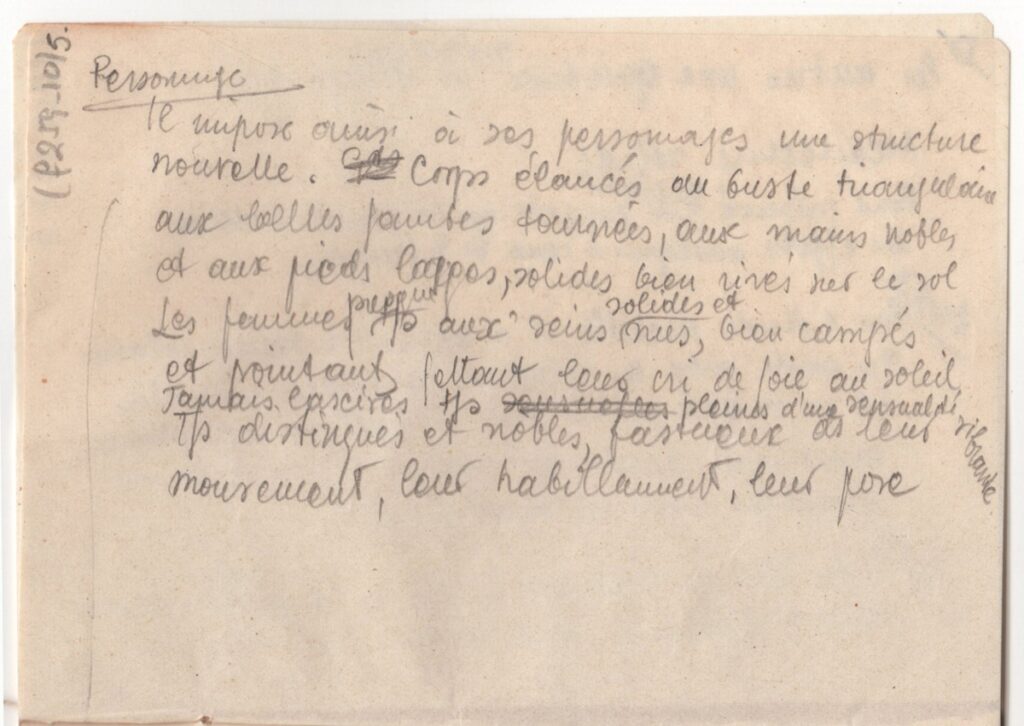 (P259-10/5.
Personnage
Il impose ainsi à ses personnages une structure
nouvelle. Corps élancés au buste triangulaire
aux belles jambes tournées, aux mains nobles
et aux pieds larges, solides bien rivés sur le sol
Les femmes presque tjs aux seins solides et nus, bien campés
et pointant, jettant leur cri de joie au soleil
Jamais lascives tjs sensuelles pleines d'une sensualité vibrante
Tjs distingués et nobles, fastueux ds leur
mouvement, leur habillement, leur pose